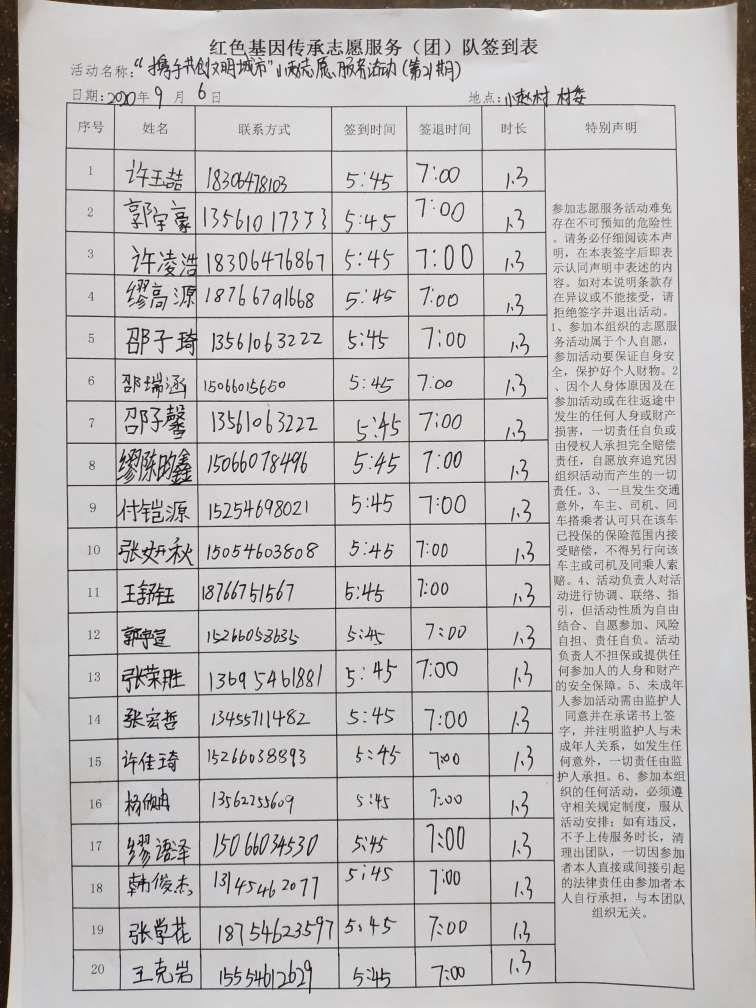 红色基因传承志愿服务（团）队签到表
活动名称：“携手共创文明城市”小雨志愿服务活动（第21期）
日期：2020年9月6日 地点：小赵村 村委
序号 姓名 联系方式 签到时间 签退时间 时长 特别声明
1 许玉喆 18306478103 5:45 7:00 1.3
2 郭宇豪 13561017353 5:45 7:00 1.3
3 许凌浩 18306476867 5:45 7:00 1.3
4 缪高源 18766791668 5:45 7:00 1.3
5 邵子琦 13561063222 5:45 7:00 1.3
6 邵瑞涵 15066015650 5:45 7:00 1.3
7 邵子馨 13561063222 5:45 7:00 1.3
8 缪陈昀鑫 15066078496 5:45 7:00 1.3
9 付铠源 15254698021 5:45 7:00 1.3
10 张妍秋 15054603808 5:45 7:00 1.3
11 王舒钰 18766751567 5:45 7:00 1.3
12 15266053635 5:45 7:00 1.3
13 张荣胜 13695461881 5:45 7:00 1.3
14 张宏哲 13455711482 5:45 7:00 1.3
15 许佳琦 15266038893 5:45 7:00 1.3
16 杨欣冉 13562755609 5:45 7:00 1.3
17 缪语泽 15066034530 5:45 7:00 1.3
18 韩俊杰 13145462077 5:45 7:00 1.3
19 张学花 18754623597 5:45 7:00 1.3
20 王克岩 15554612629 5:45 7:00 1.3
参加志愿服务活动难免
存在不可预知的危险性
。请务必仔细阅读本声
明，在本表签字后即表
示认同声明中表述的内
容。如对本说明条款存
在异议或不能接受，请
拒绝签字并退出活动。
1、参加本组织的志愿服
务活动属于个人自愿，
参加活动要保证自身安
全，保护好个人财物。2
、因个人身体原因及在
参加活动或在往返途中
发生的任何人身或财产
损害，一切责任自负或
由侵权人承担完全赔偿
责任，自愿放弃追究因
组织活动而产生的一切
责任。3、一旦发生交通
意外，车主、司机、同
车搭乘者认可只在该车
已投保的保险范围内接
受赔偿，不得另行向该
车主或司机及同乘人索
赔。4、活动负责人对活
动进行协调、联络、指
引，但活动性质为自由
结合、自愿参加、风险
自担、责任自负。活动
负责人不担保或提供任
何参加人的人身和财产
的安全保障。5、未成年
人参加活动需由监护人
同意并在承诺书上签
字，并注明监护人与未
成年人关系，如发生任
何意外，一切责任由监
护人承担。6、参加本组
织的任何活动，必须遵
守相关规定制度，服从
活动安排；如有违反，
不予上传服务时长，清
理出团队，一切因参加
者本人直接或间接引起
的法律责任由参加者本
人自行承担，与本团队
组织无关。